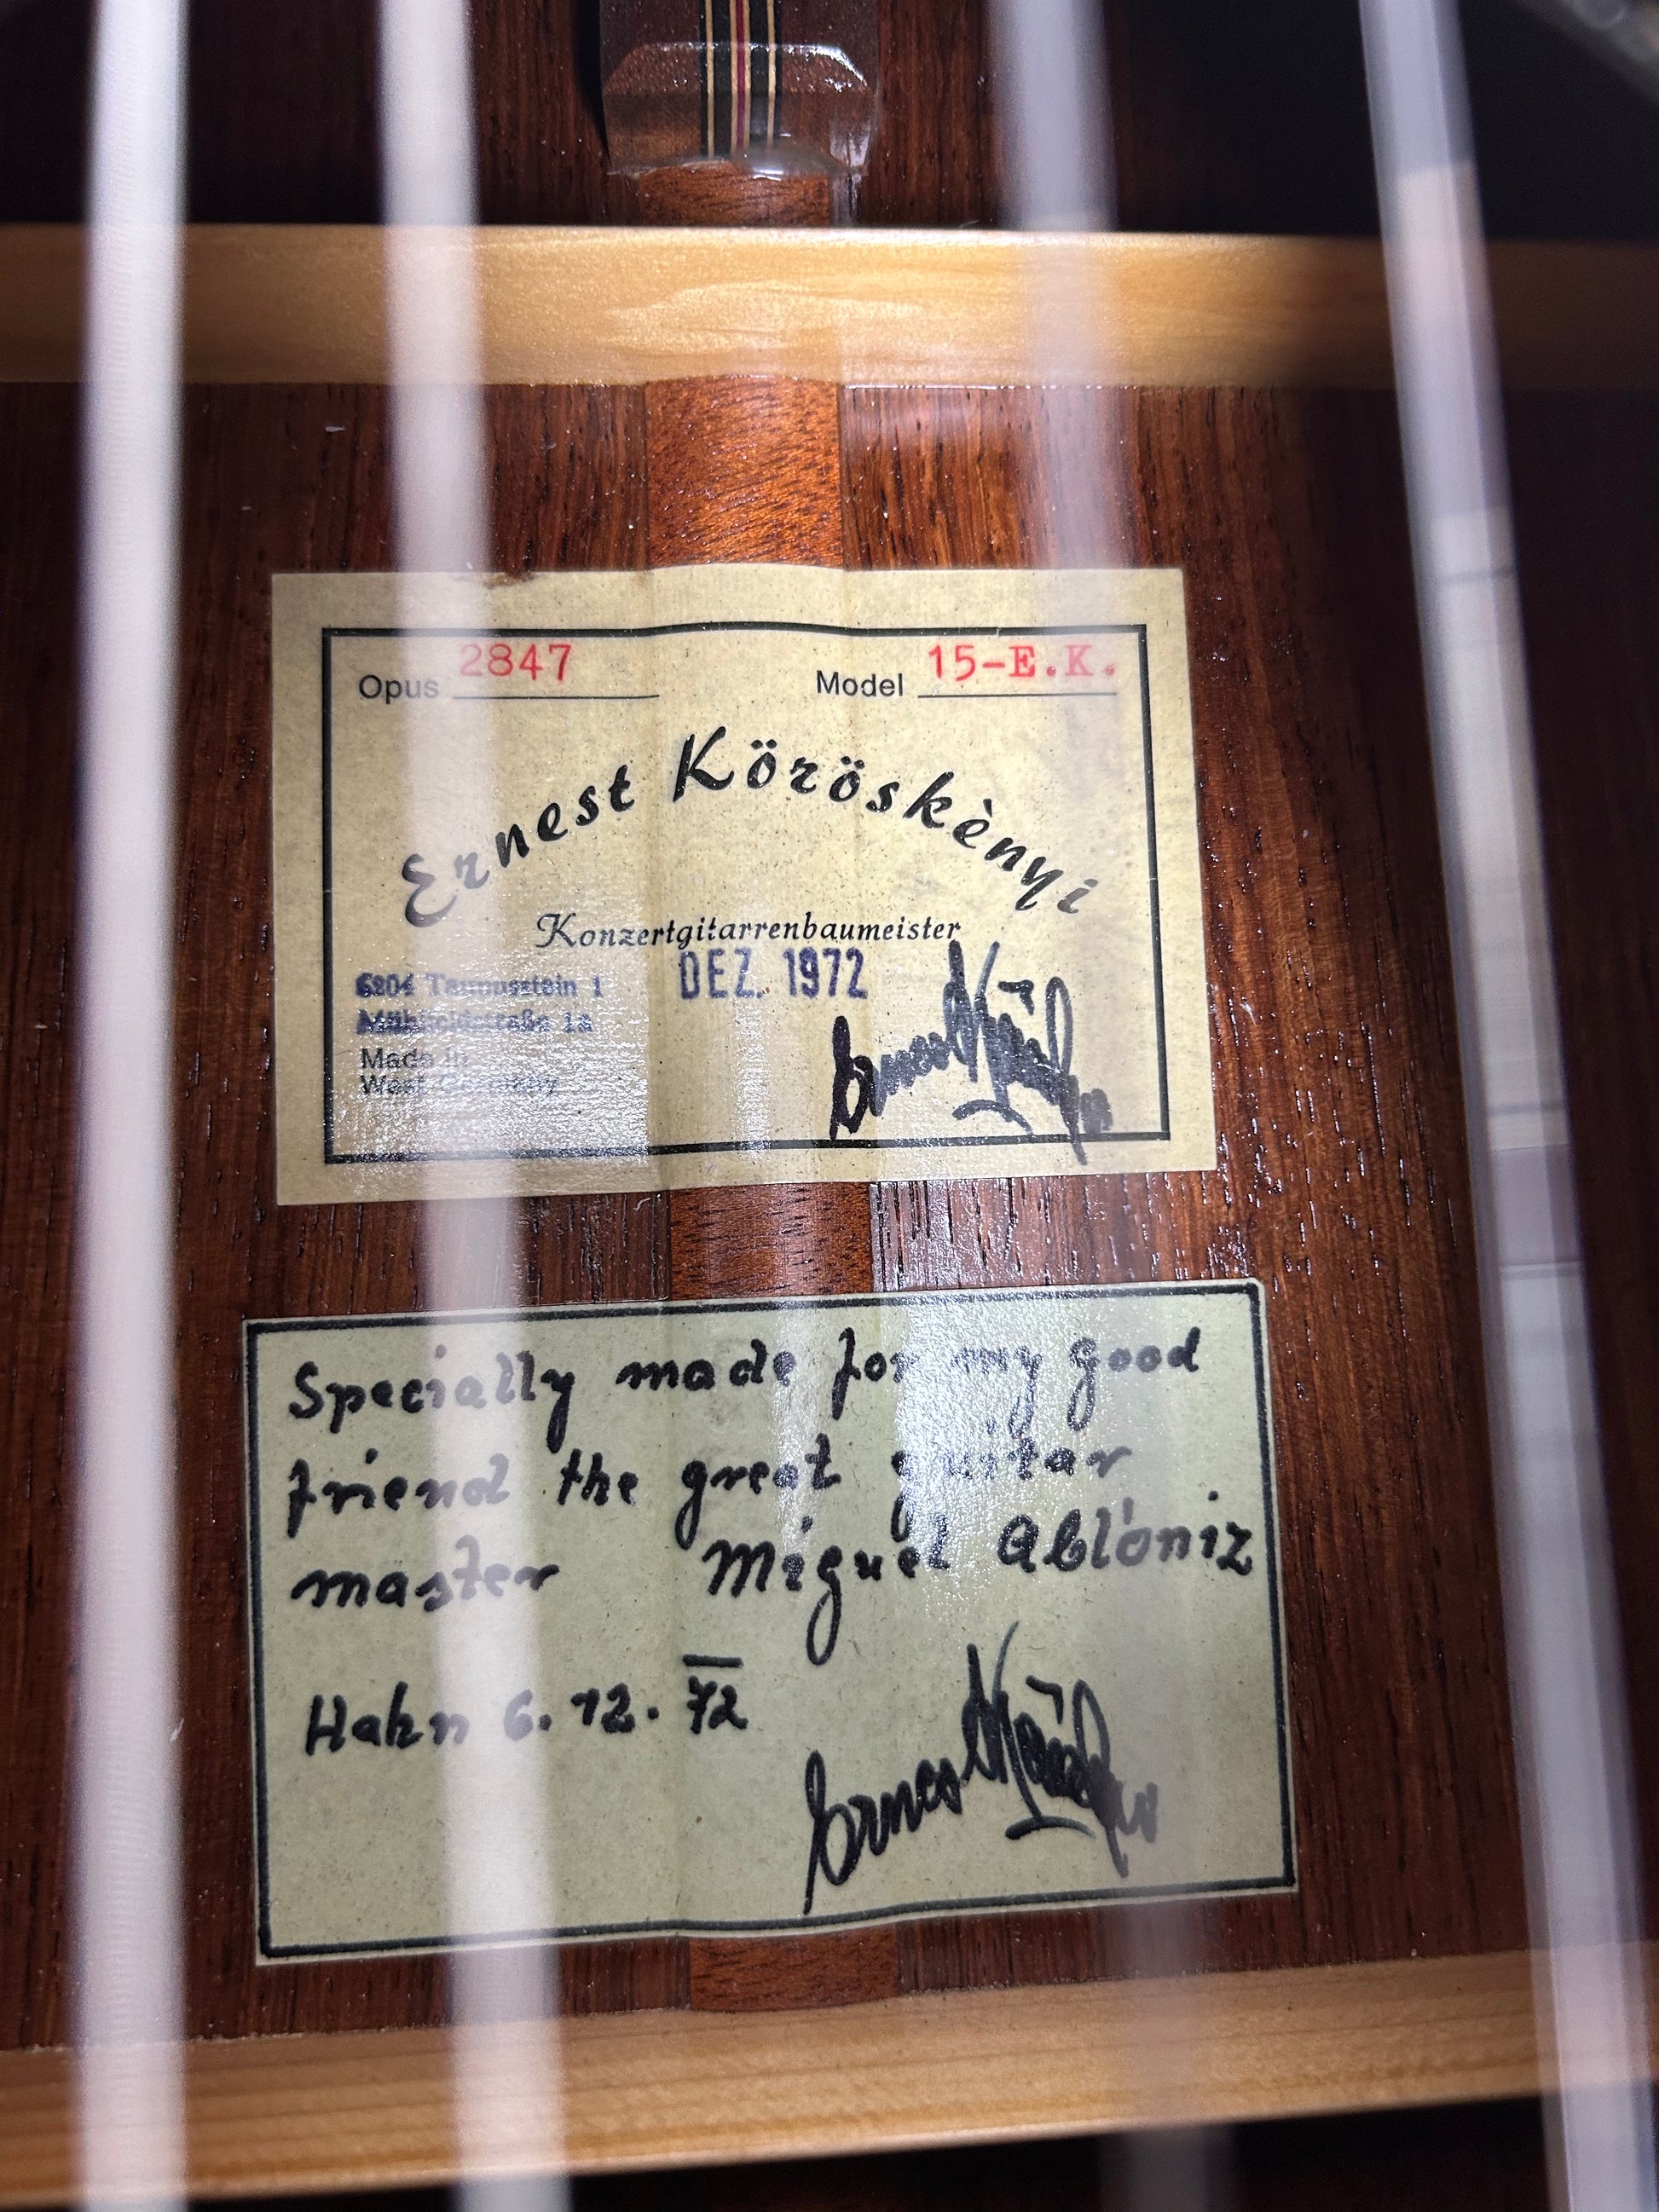 Opus 2847 Model 15-E.K.
Ernest Köröskènyi
Konzertgitarrenbaumeister
DEZ. 1972
6204 Taunusstein 1
1a
Made in
West Germany
Specially made for my good
friend the great guitar
master Miguel Abloniz
Hahn 6. 12. 72